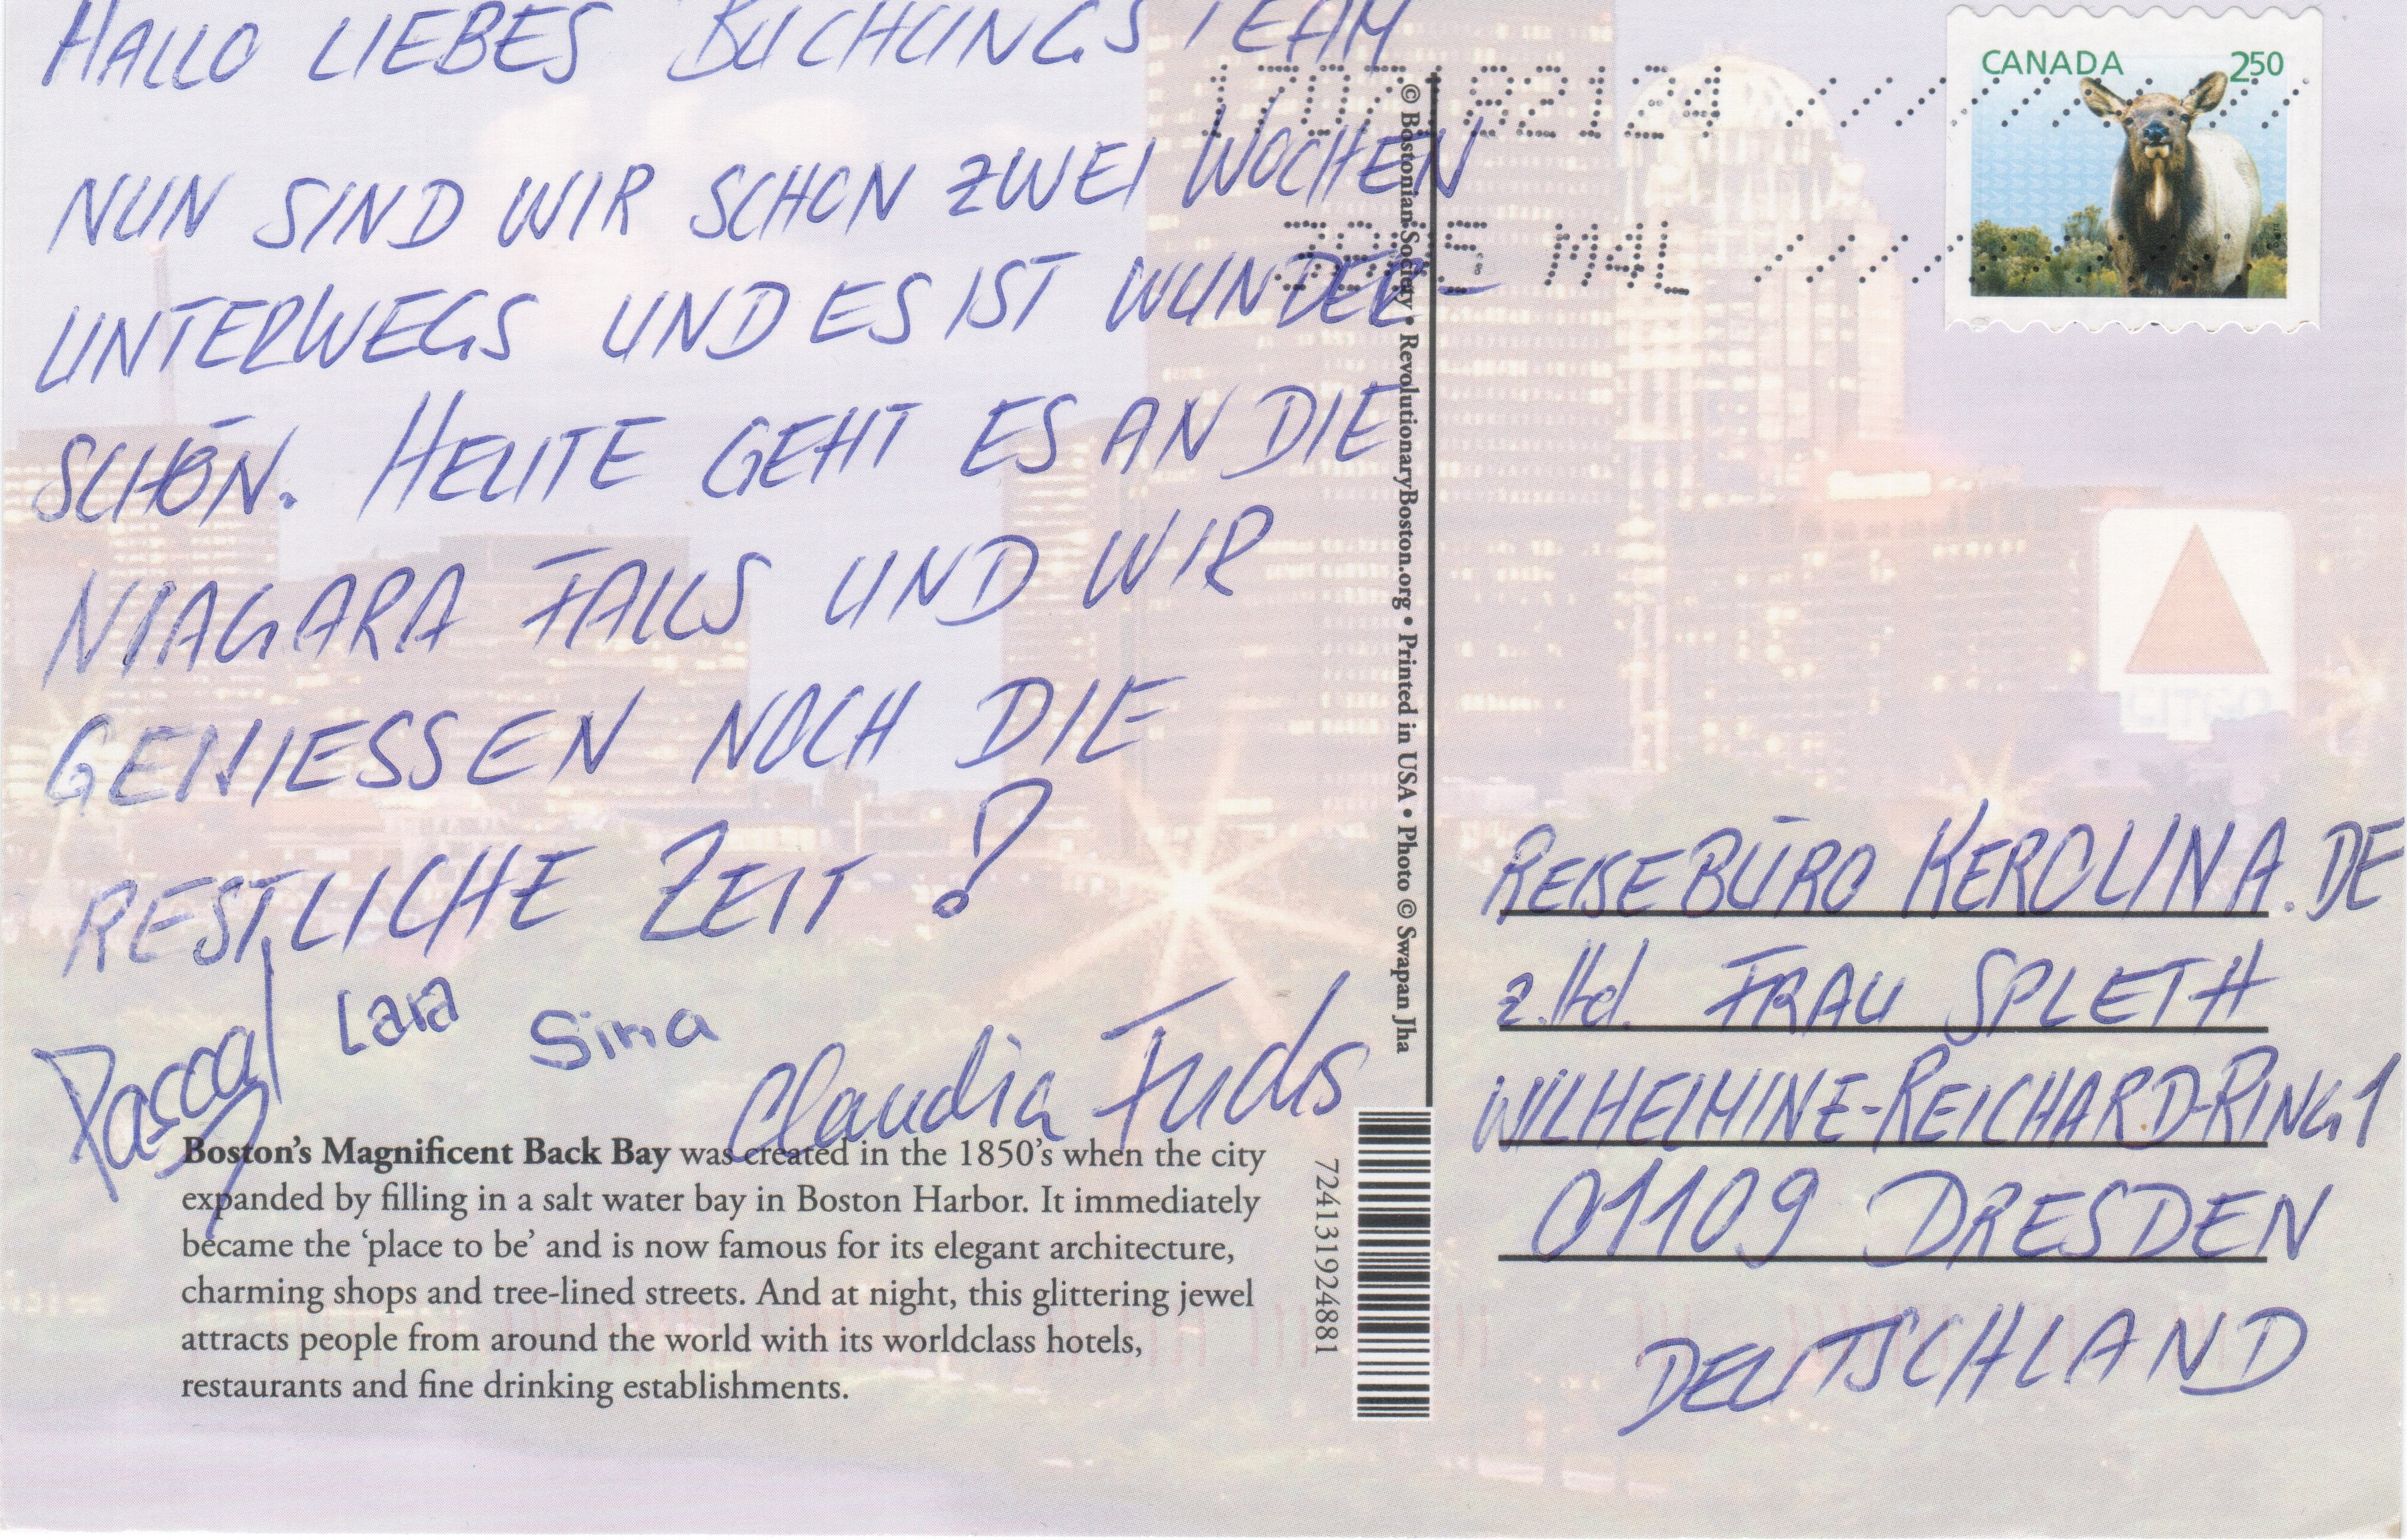 HALLO LIEBES BUCHUNGSTEAM
NUN SIND WIR SCHON ZWEI WOCHEN
UNTERWEGS UND ES IST WUNDER
SCHÖN. HEUTE GEHT ES AN DIE
NIAGARA FALLS UND WIR
GENIESSEN NOCH DIE
RESTLICHE ZEIT!
Pascal Lara Sina Claudia Fuchs
Boston's Magnificent Back Bay was created in the 1850's when the city
expanded by filling in a salt water bay in Boston Harbor. It immediately
became the 'place to be' and is now famous for its elegant architecture,
charming shops and tree-lined streets. And at night, this glittering jewel
attracts people from around the world with its worldclass hotels,
restaurants and fine drinking establishments.
© Bostonian Society • RevolutionaryBoston.org • Printed in USA • Photo © Swapan Jha
724131924881
CANADA 250
M4L
REISEBÜRO KEROLINA.DE
z.Hd. FRAU SPLETH
WILHELMINE-REICHARD-RING 1
01109 DRESDEN
DEUTSCHLAND